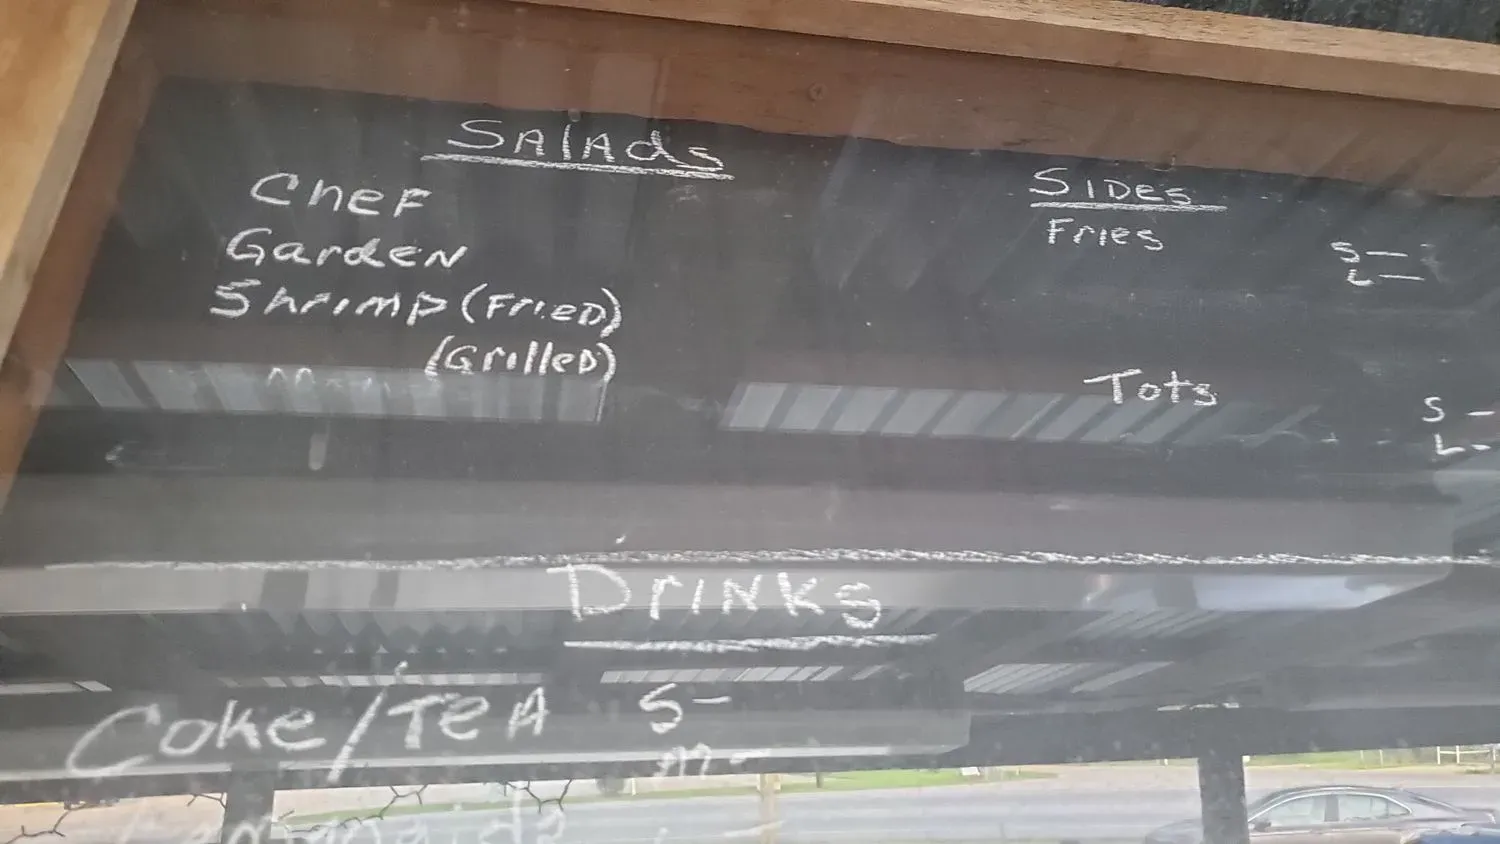 SALAds
Chef
Garden
Shrimp (Fried)
(Grilled)
SIDES
Fries
S —
L —
Tots
S -
L -
Drinks
Coke/TEA S -
m -